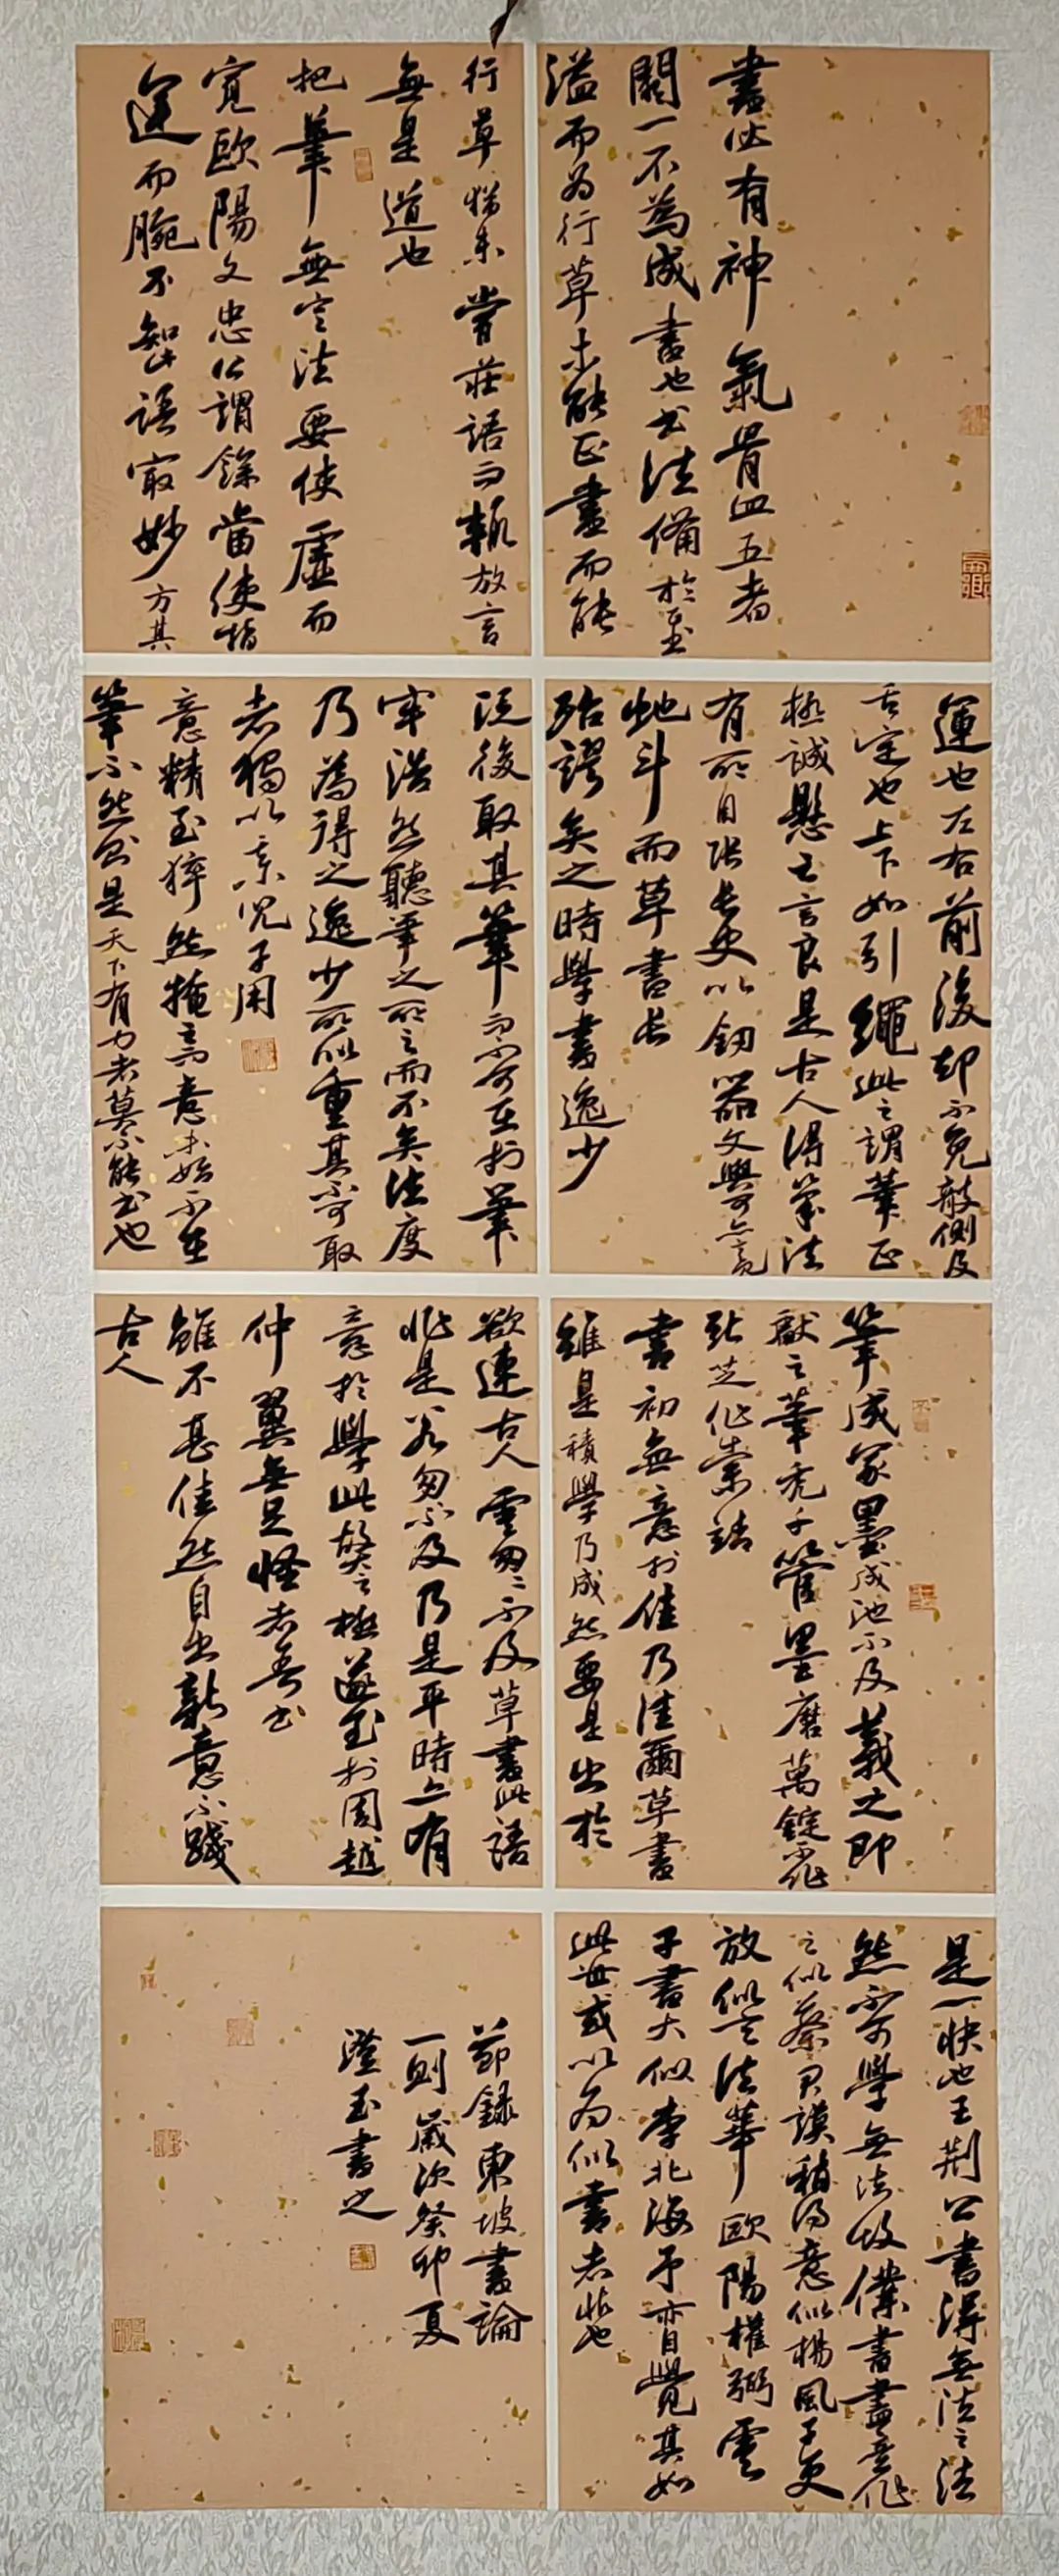 書必有神氣骨血五者
闕一不為成書也書法備於正
溢而為行草未能正書而能
行草猶未嘗莊語而輒放言
無是道也
把筆無定法要使虛而
寬歐陽文忠公謂余當使指
運而腕不知此語最妙方其
運也左右前後却不免攲側及
其定也上下如引繩此之謂筆正
極誠懸之言良是古人得筆法
有所自張長史以劍器文與可亦竟
虵斗而草書長
殆謬矣之時學書逸少
從後取其筆而不可在於筆
牢浩然聽筆之所之而不失法度
乃為得之逸少所以重其不可取
者獨以其兒子用
意精至猝然掩之而意未始不在
筆不然則是天下有力者莫不能書也
筆成冢墨成池不及羲之即
獻之筆禿千管墨磨萬錠不作
張芝作索靖
書初無意於佳乃佳爾草書
雖是積學乃成然要是出於
欲速古人云匆匆不及草書此語
非是若匆不及乃是平時亦有
意於學此弊之極遂至於周越
仲翼無足怪者吾書
雖不甚佳然自出新意不踐
古人
是一快也王荊公書得無法之法
然不可學無法故僕書盡意作
之似蔡君謨稍得意似楊風子更
放似言法華歐陽叔弼云
子書大似李北海予亦自覺其如
此世或以為似書者非也
節錄東坡書論
一則歲次癸卯夏
澄玉書之